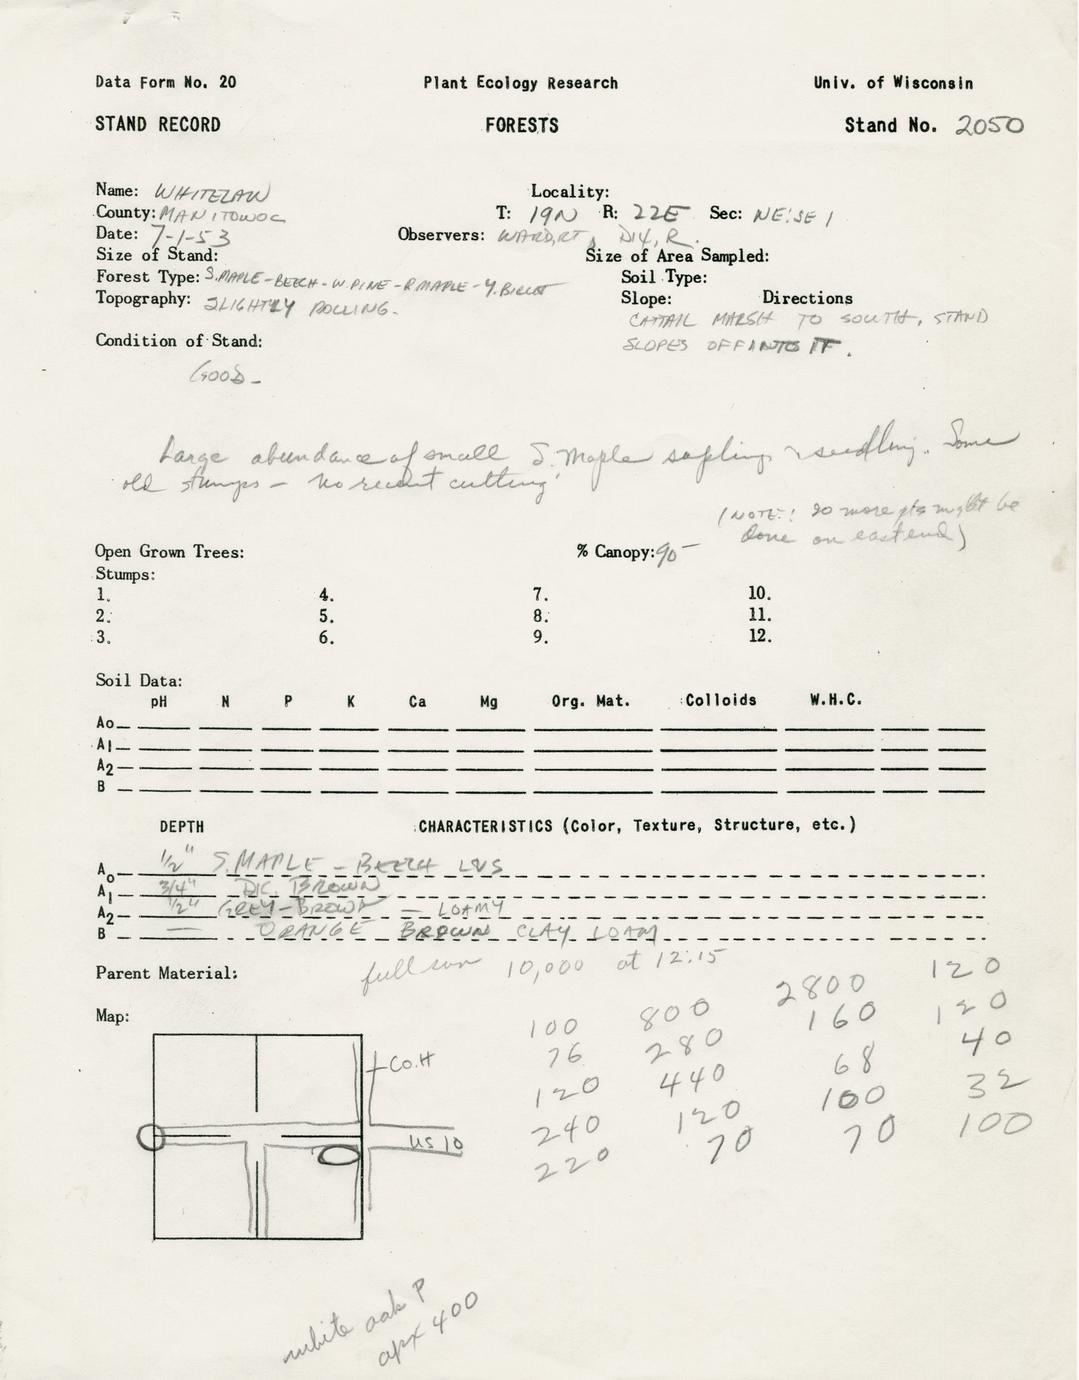 Data Form No. 20 Plant Ecology Research Univ. of Wisconsin
STAND RECORD FORESTS Stand No. 2050
Name: WHITELAW Locality:
County: MANITOWOC T: 19N R: 22E Sec: NE:SE 1
Date: 7-1-53 Observers: WARD, RT, DIX, R.
Size of Stand: Size of Area Sampled:
Forest Type: S.MAPLE-BEECH-W.PINE-R.MAPLE-Y.BIRCH Soil Type:
Topography: SLIGHTLY ROLLING. Slope: Directions
CATTAIL MARSH TO SOUTH, STAND
Condition of Stand: SLOPES OFF INTO IT.
GOOD-
Large abundance of small S. Maple saplings & seedling. Some
old stumps - no recent cutting
(NOTE: 20 more pts might be
done on east end)
Open Grown Trees: % Canopy: 90-
Stumps:
1. 4. 7. 10.
2. 5. 8. 11.
3. 6. 9. 12.
Soil Data:
pH N P K Ca Mg Org. Mat. Colloids W.H.C.
Ao
A1
A2
B
DEPTH CHARACTERISTICS (Color, Texture, Structure, etc.)
Ao 1/2" S.MAPLE - BEECH LVS
A1 3/4" DK. BROWN
A2 1/2" GREY-BROWN - LOAMY
B — ORANGE BROWN CLAY LOAM
Parent Material: full sun 10,000 at 12:15
Map:
100 800 2800 120
76 280 160 120
120 440 68 40
240 120 100 32
220 70 70 100
Co.H
US 10
white oak P
apx 400